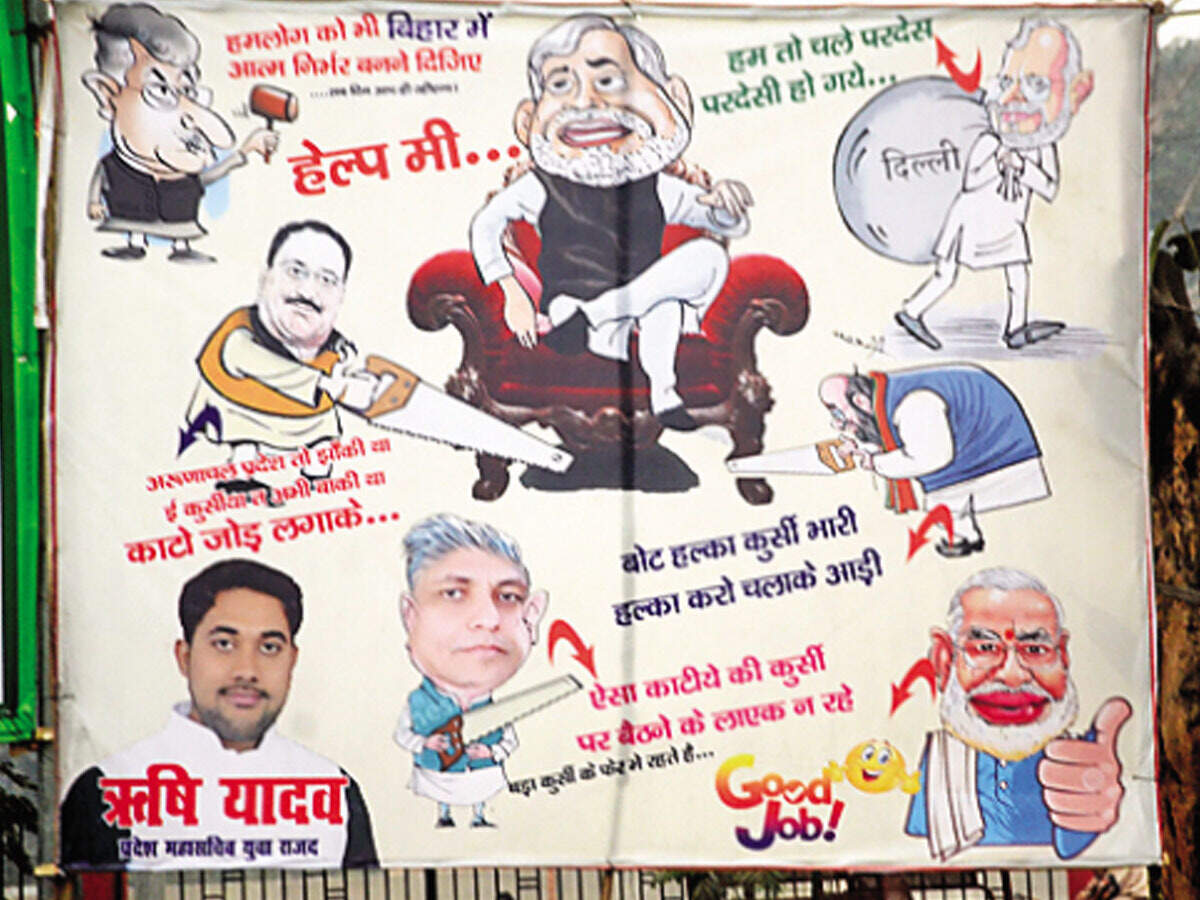 हमलोग को भी बिहार में
आत्म निर्भर बनने दिजिए
हेल्प मी...
हम तो चले परदेस
परदेसी हो गये...
दिल्ली
अरूणाचल प्रदेश तो झाँकी था
ई कुर्सीया त अभी बाकी था
काटो जोड़ लगाके...
बोट हल्का कुर्सी भारी
हल्का करो चलाके आड़ी
ऐसा काटीये की कुर्सी
पर बैठने के लाएक न रहे
बड़ा कुर्सी के फेर में रहते है...
Good
Job!
ऋषि यादव
प्रदेश महासचिव युवा राजद